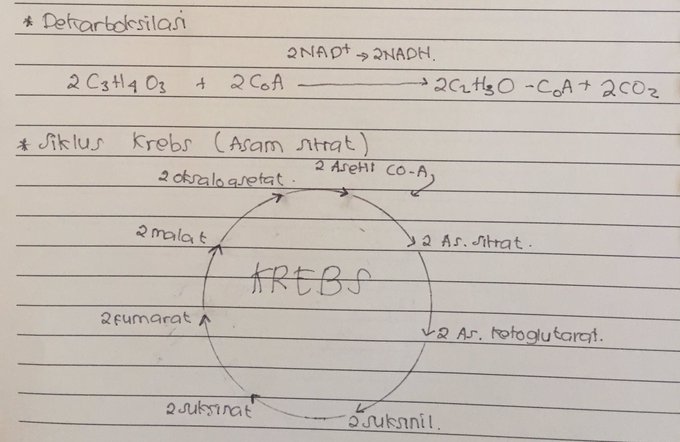 * Dekarboksilasi
2NAD+ → 2NADH.
2C3H4O3 + 2CoA → 2C2H3O - CoA + 2CO2
* Siklus Krebs (Asam sitrat)
2 Asetil CO-A
2 oksaloasetat.
2 malat
2 As. sitrat.
KREBS
2 fumarat
2 As. ketoglutarat.
2 suksinat
2 suksinil.